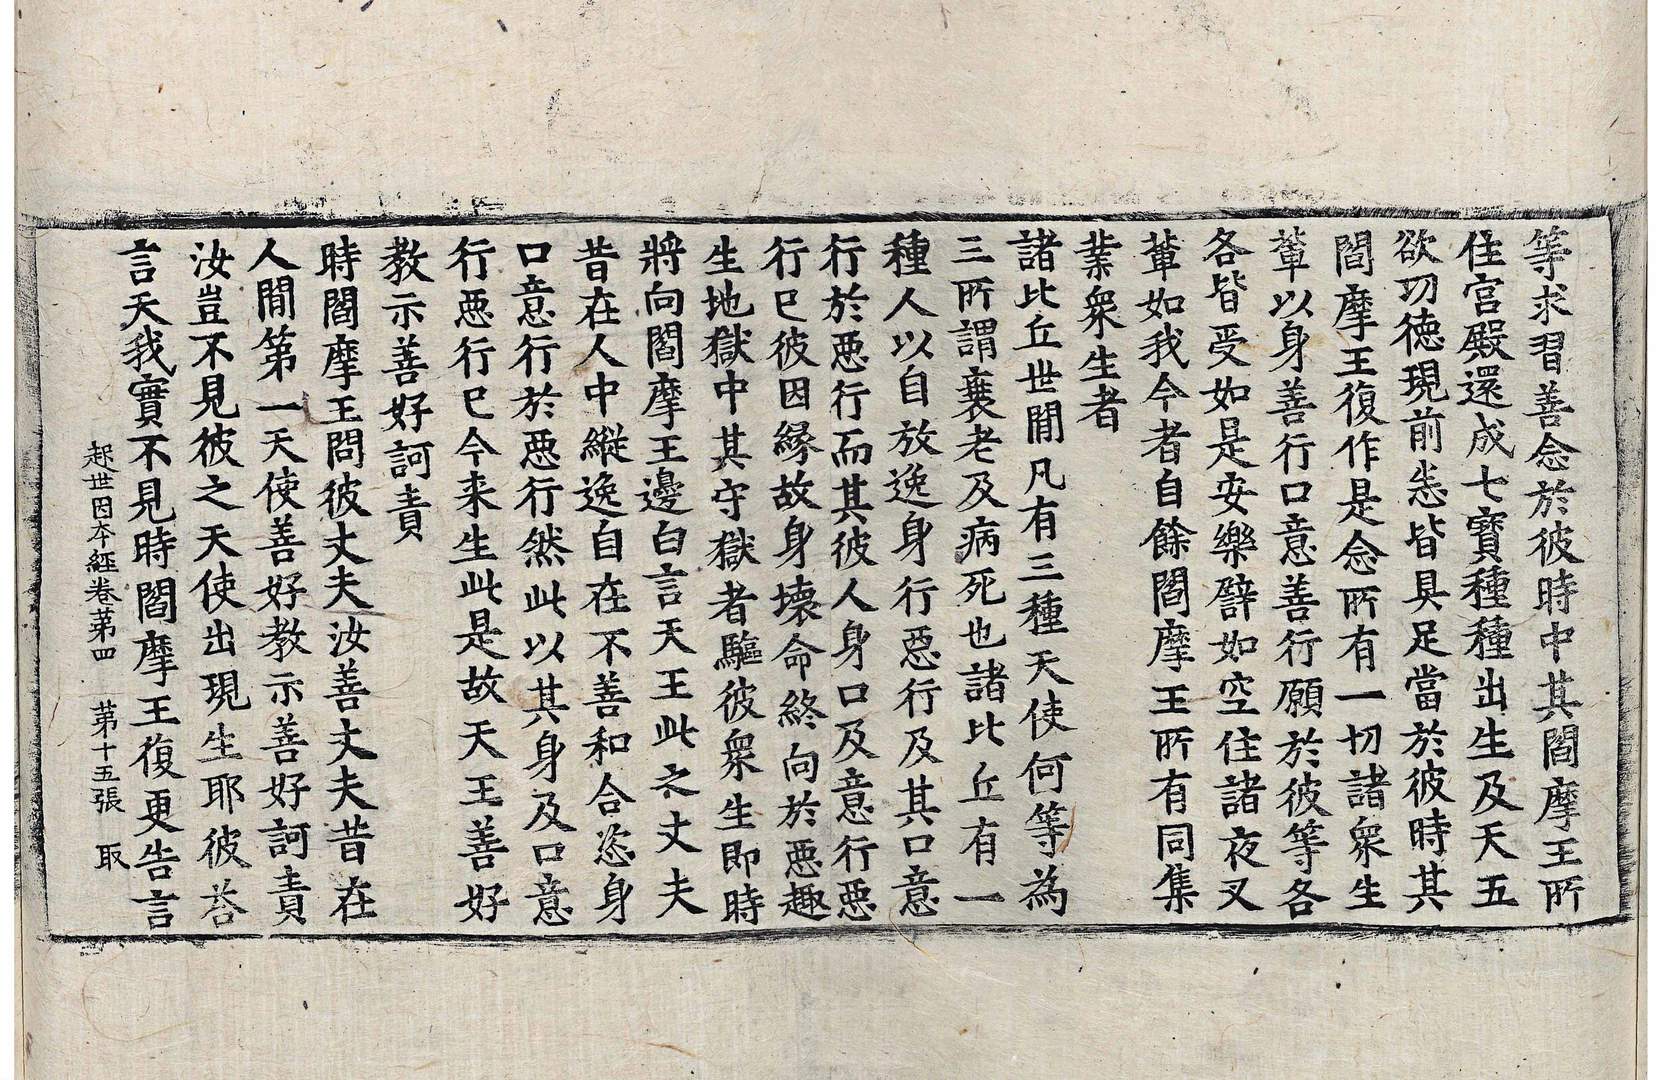 等求習善念於彼時中其閻摩王所
住宮殿還成七寶種種出生及天五
欲功德現前悉皆具足當於彼時其
閻摩王復作是念所有一切諸衆生
輩以身善行口意善行願於彼等各
各皆受如是安樂譬如空住諸夜叉
輩如我今者自餘閻摩王所有同集
業衆生者
諸比丘世間凡有三種天使何等為
三所謂衰老及病死也諸比丘有一
種人以自放逸身行惡行及其口意
行於惡行而其彼人身口及意行惡
行已彼因緣故身壞命終向於惡趣
生地獄中其守獄者驅彼衆生即時
將向閻摩王邊白言天王此之丈夫
昔在人中縱逸自在不善和合恣身
口意行於惡行然此以其身及口意
行惡行已今来生此是故天王善好
教示善好訶責
時閻摩王問彼丈夫汝善丈夫昔在
人間第一天使善好教示善好訶責
汝豈不見彼之天使出現生耶彼荅
言天我實不見時閻摩王復更告言
起世因本經卷第四 第十五張 取